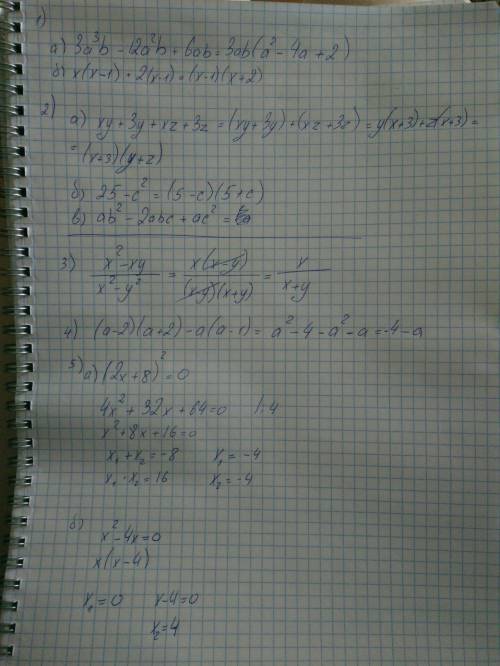 1)
а) 3a³b - 12a²b + 6ab = 3ab(a² - 4a + 2)
б) x(x-1) + 2(x-1) = (x-1)(x+2)
2)
а) xy + 3y + xz + 3z = (xy + 3y) + (xz + 3z) = y(x+3) + z(x+3) =
= (x+3)(y+z)
б) 25 - c² = (5-c)(5+c)
в) ab² - 2abc + ac² =
3) x² - xy / x² - y² = x(x-y) / (x-y)(x+y) = x / x+y
4) (a-2)(a+2) - a(a-1) = a² - 4 - a² - a = -4 - a
5) а) (2x+8)² = 0
4x² + 32x + 64 = 0 | : 4
x² + 8x + 16 = 0
x₁ + x₂ = -8 x₁ = -4
x₁ · x₂ = 16 x₂ = -4
б)
x² - 4x = 0
x(x-4)
x₁ = 0 x-4 = 0
x₂ = 4